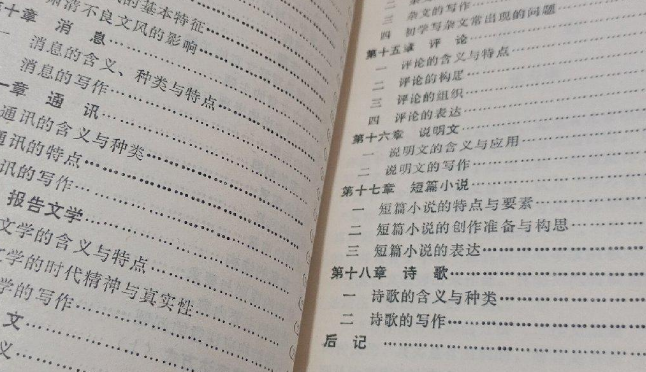 的基本特征
肃清不良文风的影响
十章 消 息
一 消息的含义、种类与特点
消息的写作
一章 通 讯
通讯的含义与种类
通讯的特点
讯的写作
报告文学
文学的含义与特点
文学的时代精神与真实性
学的写作
文
义
三 杂文的写作
四 初学写杂文常出现的问题
第十五章 评 论
一 评论的含义与特点
二 评论的构思
三 评论的组织
四 评论的表达
第十六章 说明文
一 说明文的含义与应用
二 说明文的写作
第十七章 短篇小说
一 短篇小说的特点与要素
二 短篇小说的创作准备与构思
三 短篇小说的表达
第十八章 诗 歌
一 诗歌的含义与种类
二 诗歌的写作
后 记